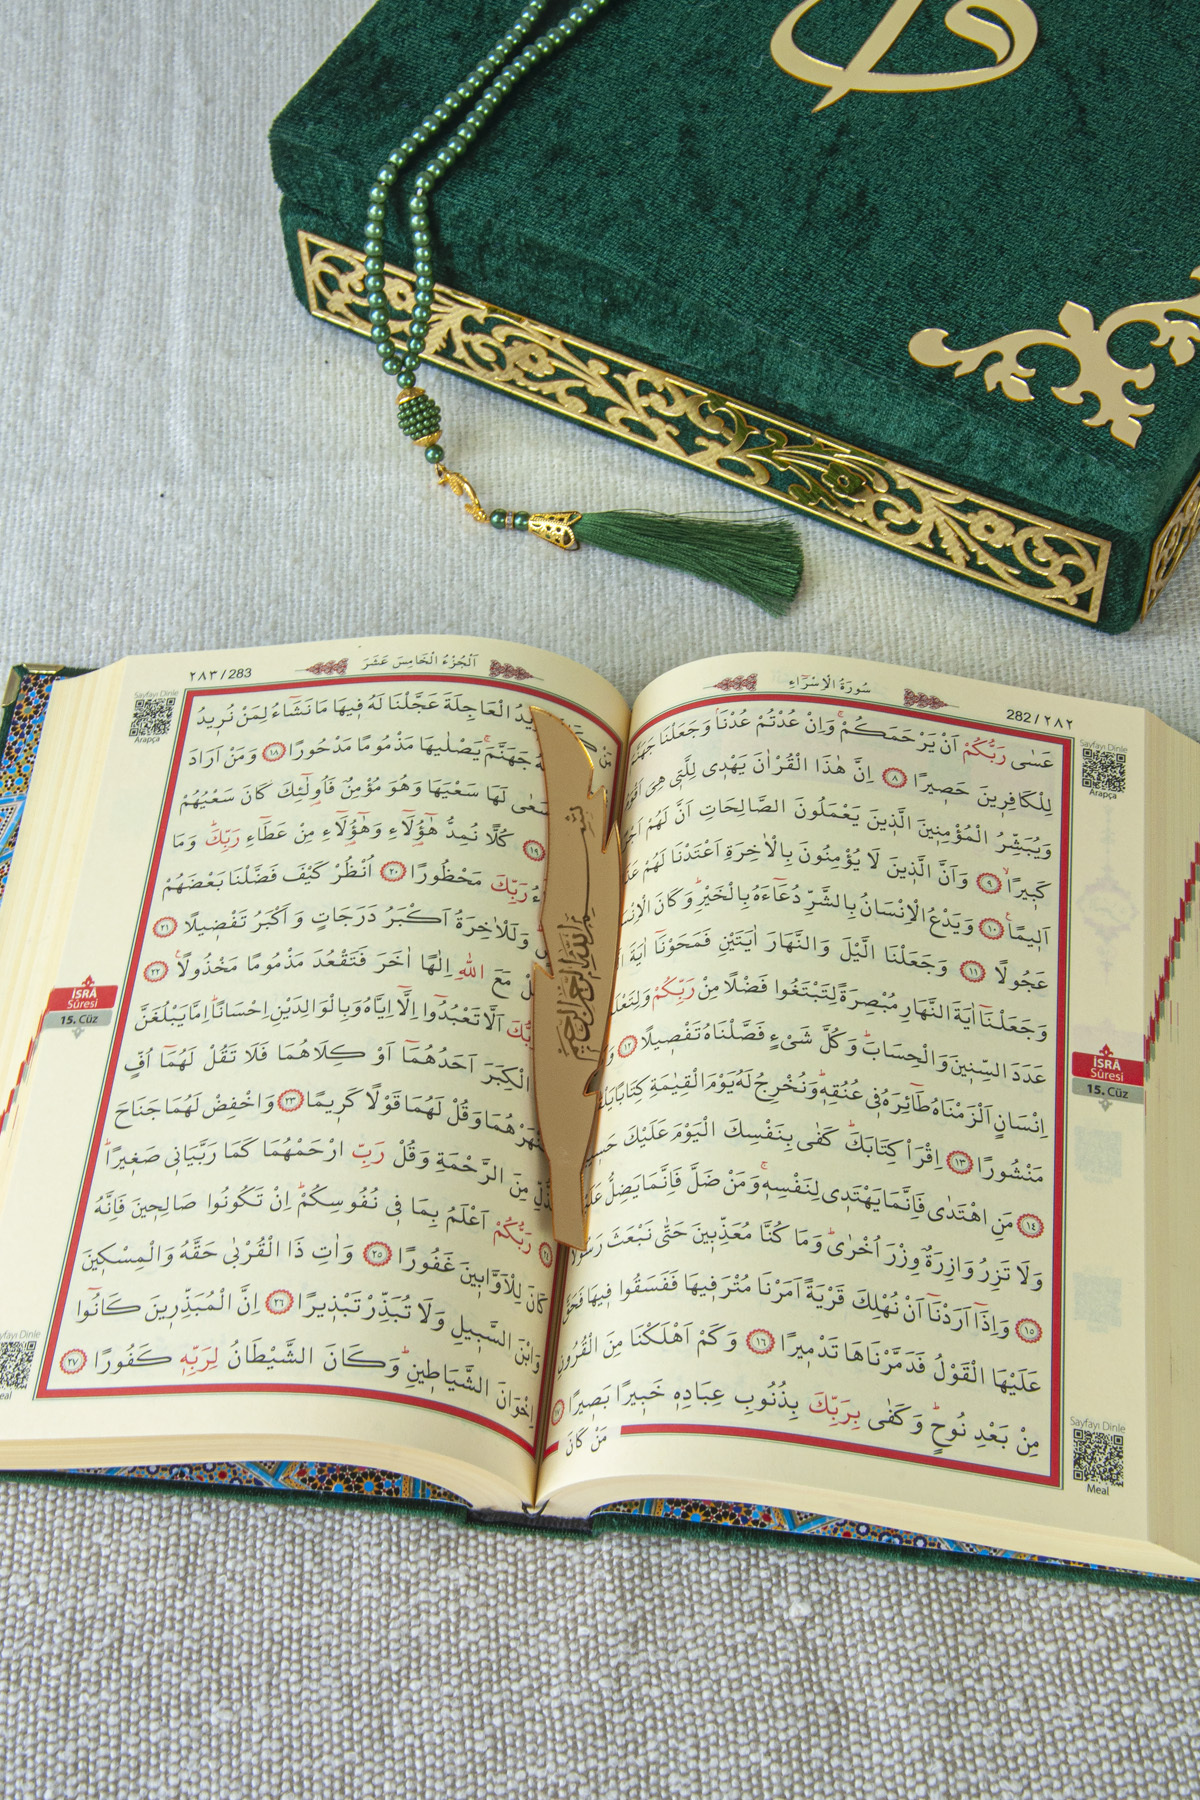 سُورَةُ الْاِسْرَٓاءِ
282 / ٢٨٢
عَسٰى رَبُّكُمْ اَنْ يَرْحَمَكُمْۚ وَاِنْ عُدْتُمْ عُدْنَاۘ وَجَعَلْنَا
لِلْكَافِرٖينَ حَصٖيرًا ﴿٨﴾ اِنَّ هٰذَا الْقُرْاٰنَ يَهْدٖى لِلَّتٖى هِىَ
وَيُبَشِّرُ الْمُؤْمِنٖينَ الَّذٖينَ يَعْمَلُونَ الصَّالِحَاتِ اَنَّ لَهُمْ
كَبٖيرًاۙ ﴿٩﴾ وَاَنَّ الَّذٖينَ لَا يُؤْمِنُونَ بِالْاٰخِرَةِ اَعْتَدْنَا لَهُمْ
اَلٖيمًا۟ ﴿١٠﴾ وَيَدْعُ الْاِنْسَانُ بِالشَّرِّ دُعَٓاءَهُ بِالْخَيْرِؕ وَكَانَ
عَجُولًا ﴿١١﴾ وَجَعَلْنَا الَّيْلَ وَالنَّهَارَ اٰيَتَيْنِ فَمَحَوْنَٓا اٰيَةَ
وَجَعَلْنَٓا اٰيَةَ النَّهَارِ مُبْصِرَةً لِتَبْتَغُوا فَضْلًا مِنْ رَبِّكُمْ
عَدَدَ السِّنٖينَ وَالْحِسَابَؕ وَكُلَّ شَىْءٍ فَصَّلْنَاهُ تَفْصٖيلًا ﴿١٢﴾
اِنْسَانٍ اَلْزَمْنَاهُ طَٓائِرَهُ فٖى عُنُقِهٖؕ وَنُخْرِجُ لَهُ يَوْمَ الْقِيٰمَةِ كِتَابًا
مَنْشُورًا ﴿١٣﴾ اِقْرَأْ كِتَابَكَؕ كَفٰى بِنَفْسِكَ الْيَوْمَ عَلَيْكَ
﴿١٤﴾ مَنِ اهْتَدٰى فَاِنَّمَا يَهْتَدٖى لِنَفْسِهٖۚ وَمَنْ ضَلَّ فَاِنَّمَا يَضِلُّ
وَلَا تَزِرُ وَازِرَةٌ وِزْرَ اُخْرٰىؕ وَمَا كُنَّا مُعَذِّبٖينَ حَتّٰى نَبْعَثَ رَسُولًا
﴿١٥﴾ وَاِذَٓا اَرَدْنَٓا اَنْ نُهْلِكَ قَرْيَةً اَمَرْنَا مُتْرَفٖيهَا فَفَسَقُوا فٖيهَا فَحَقَّ
عَلَيْهَا الْقَوْلُ فَدَمَّرْنَاهَا تَدْمٖيرًا ﴿١٦﴾ وَكَمْ اَهْلَكْنَا مِنَ الْقُرُونِ
مِنْ بَعْدِ نُوحٍؕ وَكَفٰى بِرَبِّكَ بِذُنُوبِ عِبَادِهٖ خَبٖيرًا بَصٖيرًا ﴿١٧﴾
مَنْ كَانَ
Sayfayı Dinle
Arapça
İSRÂ
Sûresi
15. Cüz
Sayfayı Dinle
Meal
اَلْجُزْءُ الْخَامِسَ عَشَرَ
٢٨٣ / 283
الْعَاجِلَةَ عَجَّلْنَا لَهُ فٖيهَا مَا نَشَٓاءُ لِمَنْ نُرٖيدُ
جَهَنَّمَۚ يَصْلٰيهَا مَذْمُومًا مَدْحُورًا ﴿١٨﴾ وَمَنْ اَرَادَ
لَهَا سَعْيَهَا وَهُوَ مُؤْمِنٌ فَاُو۬لٰٓئِكَ كَانَ سَعْيُهُمْ
﴿١٩﴾ كُلًّا نُمِدُّ هٰٓؤُ۬لَٓاءِ وَهٰٓؤُ۬لَٓاءِ مِنْ عَطَٓاءِ رَبِّكَؕ وَمَا
رَبِّكَ مَحْظُورًا ﴿٢٠﴾ اُنْظُرْ كَيْفَ فَضَّلْنَا بَعْضَهُمْ
وَلَلْاٰخِرَةُ اَكْبَرُ دَرَجَاتٍ وَاَكْبَرُ تَفْضٖيلًا ﴿٢١﴾
مَعَ اللّٰهِ اِلٰهًا اٰخَرَ فَتَقْعُدَ مَذْمُومًا مَخْذُولًا۟ ﴿٢٢﴾
اَلَّا تَعْبُدُٓوا اِلَّٓا اِيَّاهُ وَبِالْوَالِدَيْنِ اِحْسَانًاؕ اِمَّا يَبْلُغَنَّ
الْكِبَرَ اَحَدُهُمَٓا اَوْ كِلَاهُمَا فَلَا تَقُلْ لَهُمَٓا اُفٍّ
وَقُلْ لَهُمَا قَوْلًا كَرٖيمًا ﴿٢٣﴾ وَاخْفِضْ لَهُمَا جَنَاحَ
مِنَ الرَّحْمَةِ وَقُلْ رَبِّ ارْحَمْهُمَا كَمَا رَبَّيَانٖى صَغٖيرًاؕ
﴿٢٤﴾ رَبُّكُمْ اَعْلَمُ بِمَا فٖى نُفُوسِكُمْؕ اِنْ تَكُونُوا صَالِحٖينَ فَاِنَّهُ
كَانَ لِلْاَوَّابٖينَ غَفُورًا ﴿٢٥﴾ وَاٰتِ ذَا الْقُرْبٰى حَقَّهُ وَالْمِسْكٖينَ
وَابْنَ السَّبٖيلِ وَلَا تُبَذِّرْ تَبْذٖيرًا ﴿٢٦﴾ اِنَّ الْمُبَذِّرٖينَ كَانُٓوا
اِخْوَانَ الشَّيَاطٖينِؕ وَكَانَ الشَّيْطَانُ لِرَبِّهٖ كَفُورًا ﴿٢٧﴾
Sayfayı Dinle
Arapça
İSRÂ
Sûresi
15. Cüz
بِسْمِ اللّٰهِ الرَّحْمٰنِ الرَّحِيمِ